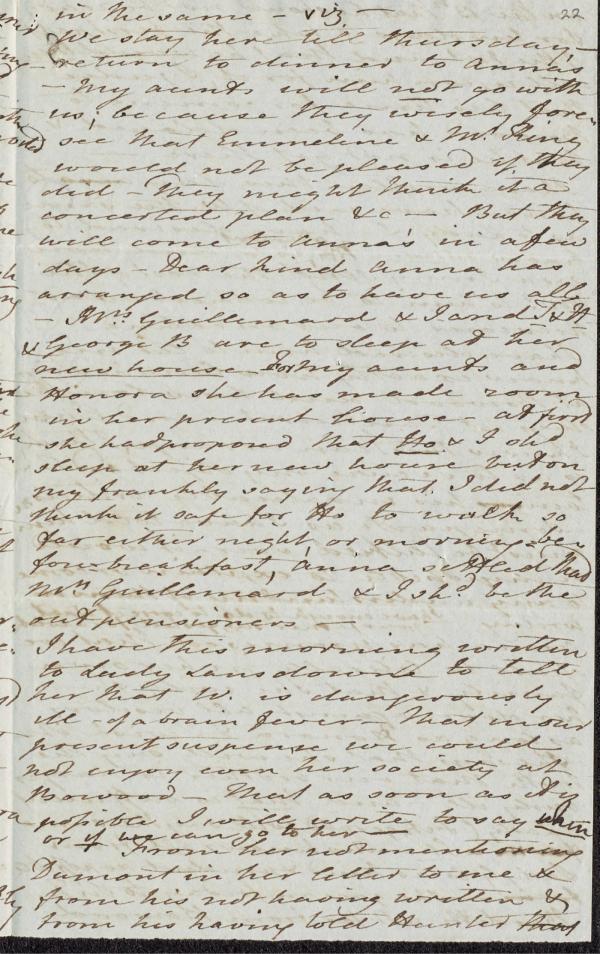 22
in the same – viz. –
We stay here till thursday –
return to dinner to Anna's
– My aunts will not go with
us, because they wisely fore-
see that Emmeline & Mr. King
would not be pleased if they
did – They might think it a
concerted plan &c – But they
will come to Anna's in a few
days – Dear kind Anna has
arranged so as to have us all
– Mrs. Guillemard & I and
& George B are to sleep at her
new house – For my aunts and
Honora she has made room
in her present house – at first
she had proposed that Ho & I shd
sleep at her new house but on
my frankly saying that I did not
think it safe for Ho to walk so
far either night or morning be
fore breakfast, Anna settled that
Mrs Guillemard & I shd. be the
outpensioners –
I have this morning written
to Lady Lansdowne to tell
her that W. is dangerously
ill – of a brain fever – that in our
present suspense we could
not enjoy even her society at
Bowood – that as soon as it is
possible I will write to say when
or if we can go to her –
From her not mentioning
Dumont in her letter to me &
from his not having written &
from his having told Hunter that